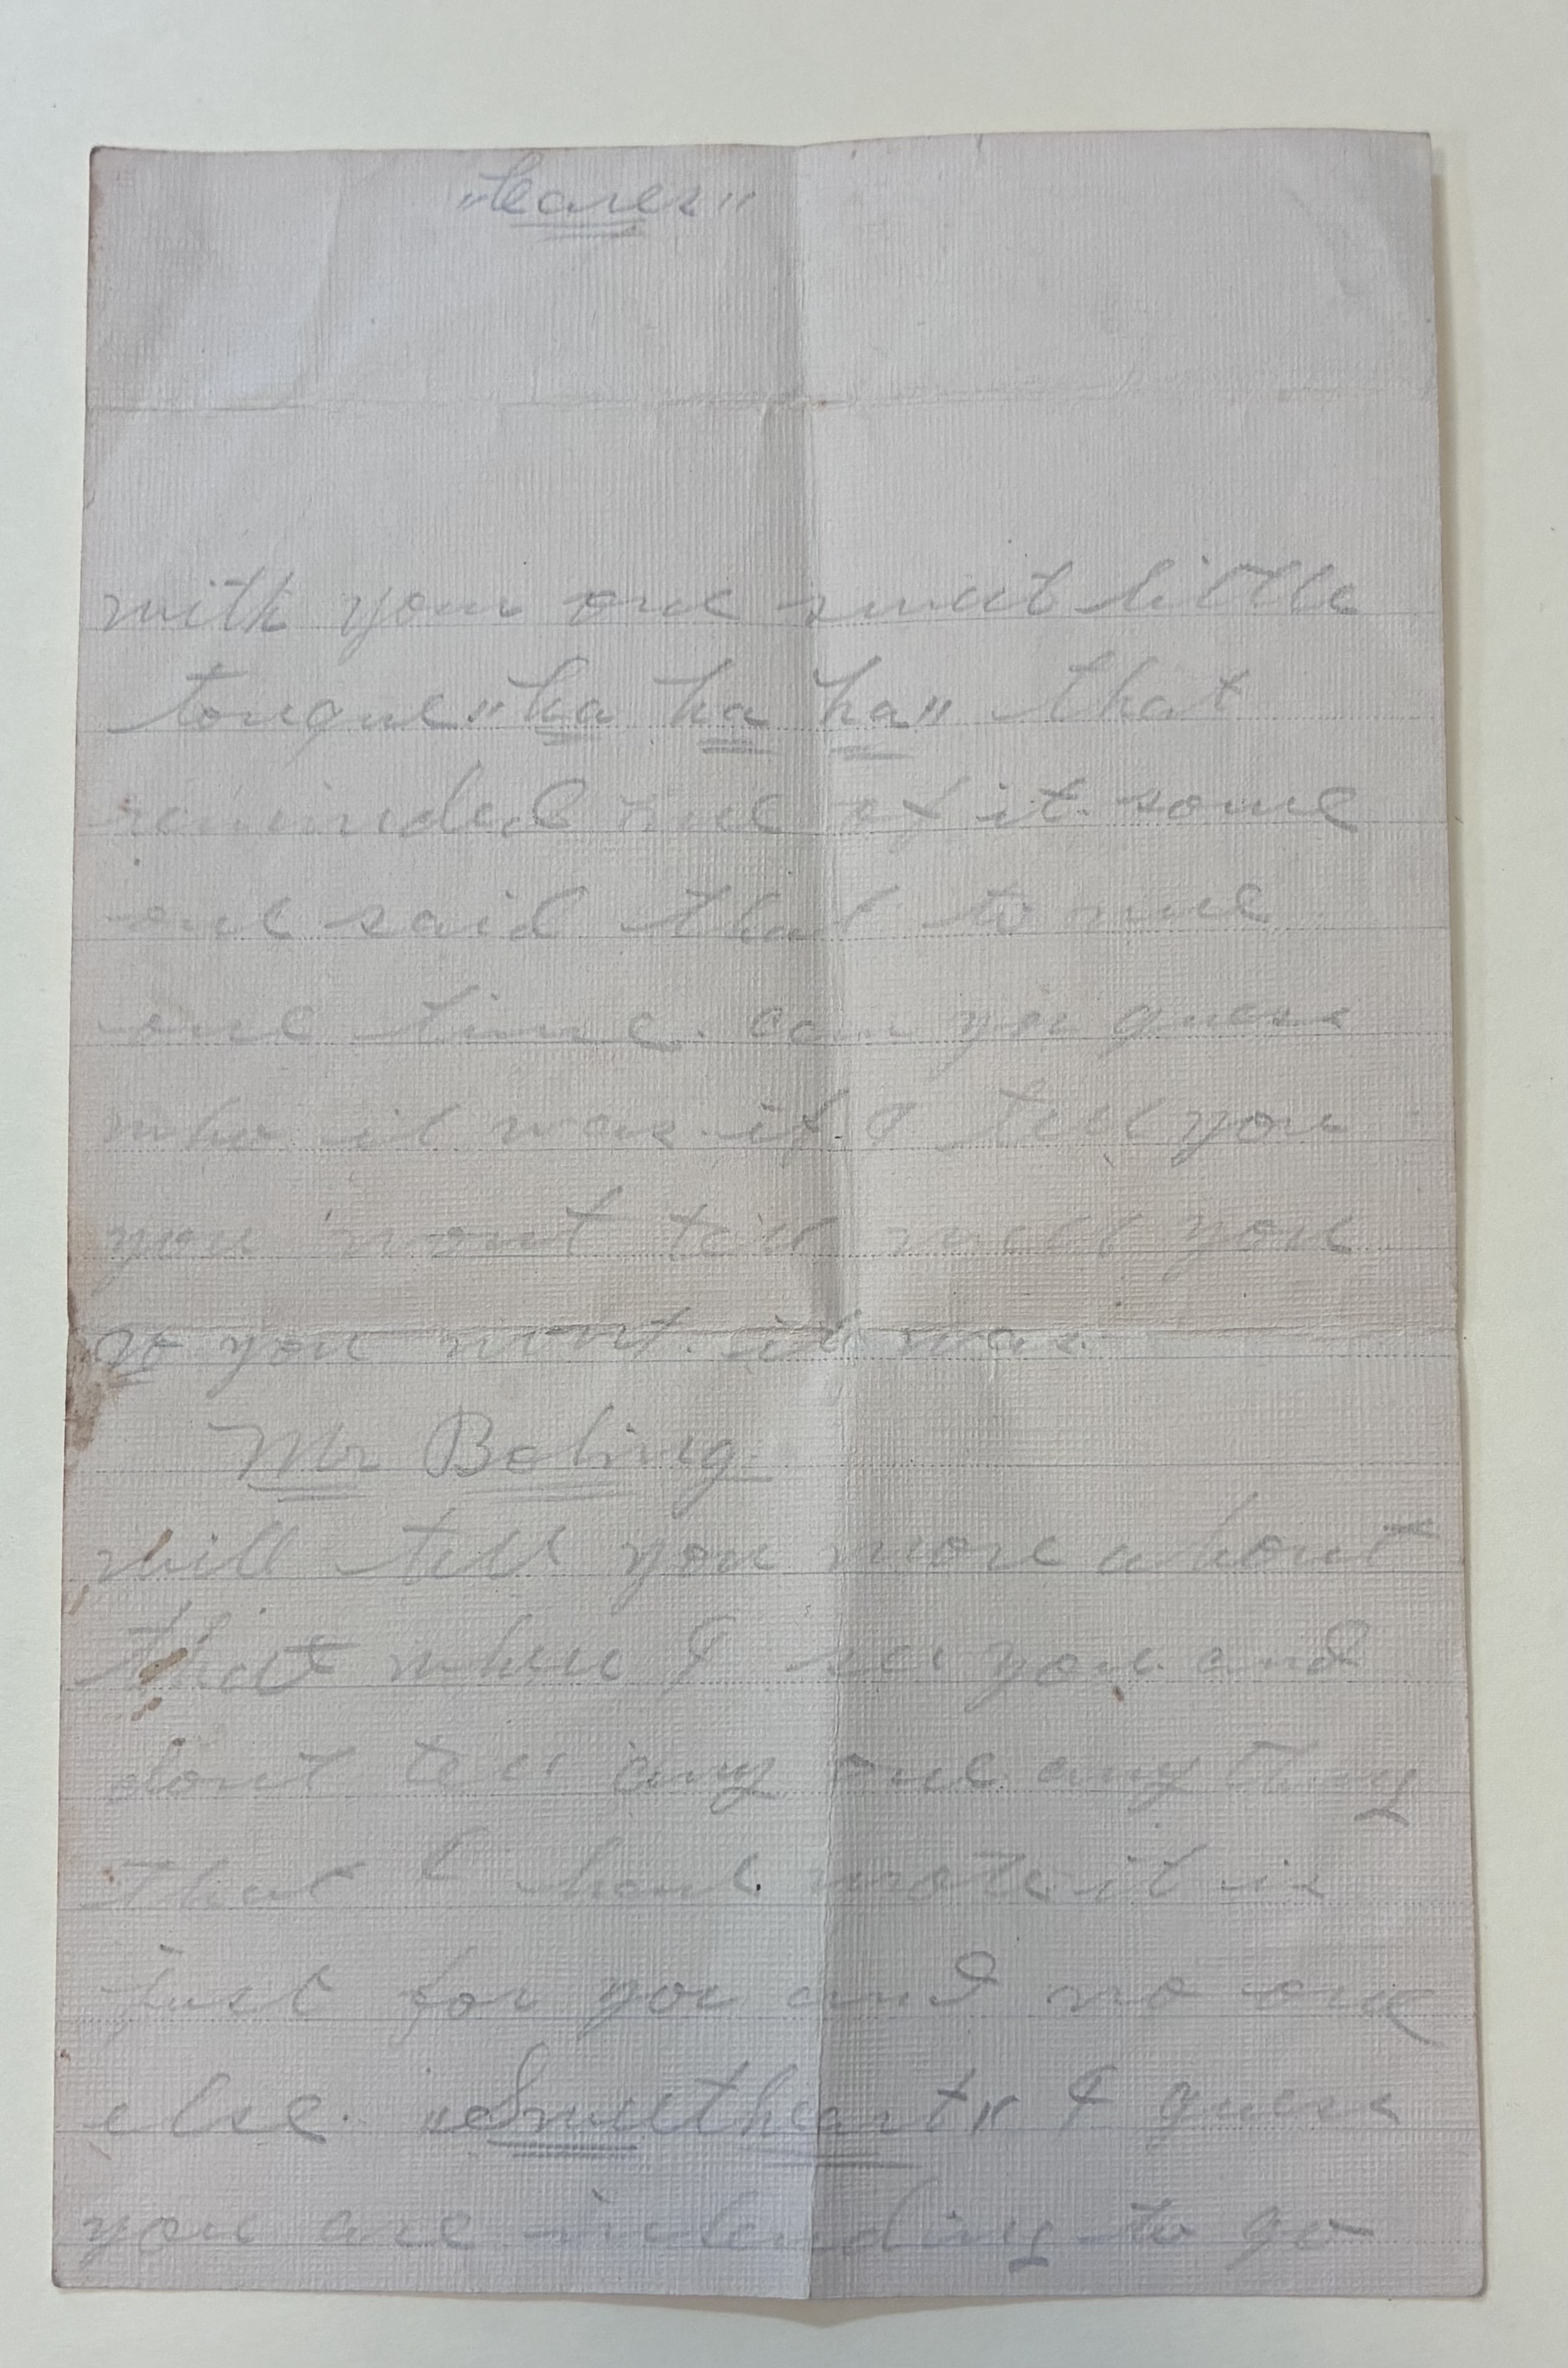 with your one sweet little
tongue "ha ha ha" that
reminded me of it. some
one said that to me
one time. can you guess
who it was. if I tell you
you wont tell will you
no you wont. it was.
Mr Boling.
will tell you more about
that when I see you. and
dont tell any one any thing
that I have wrote it is
just for you and no one
else. "Sweetheart" I guess
you are intending to go